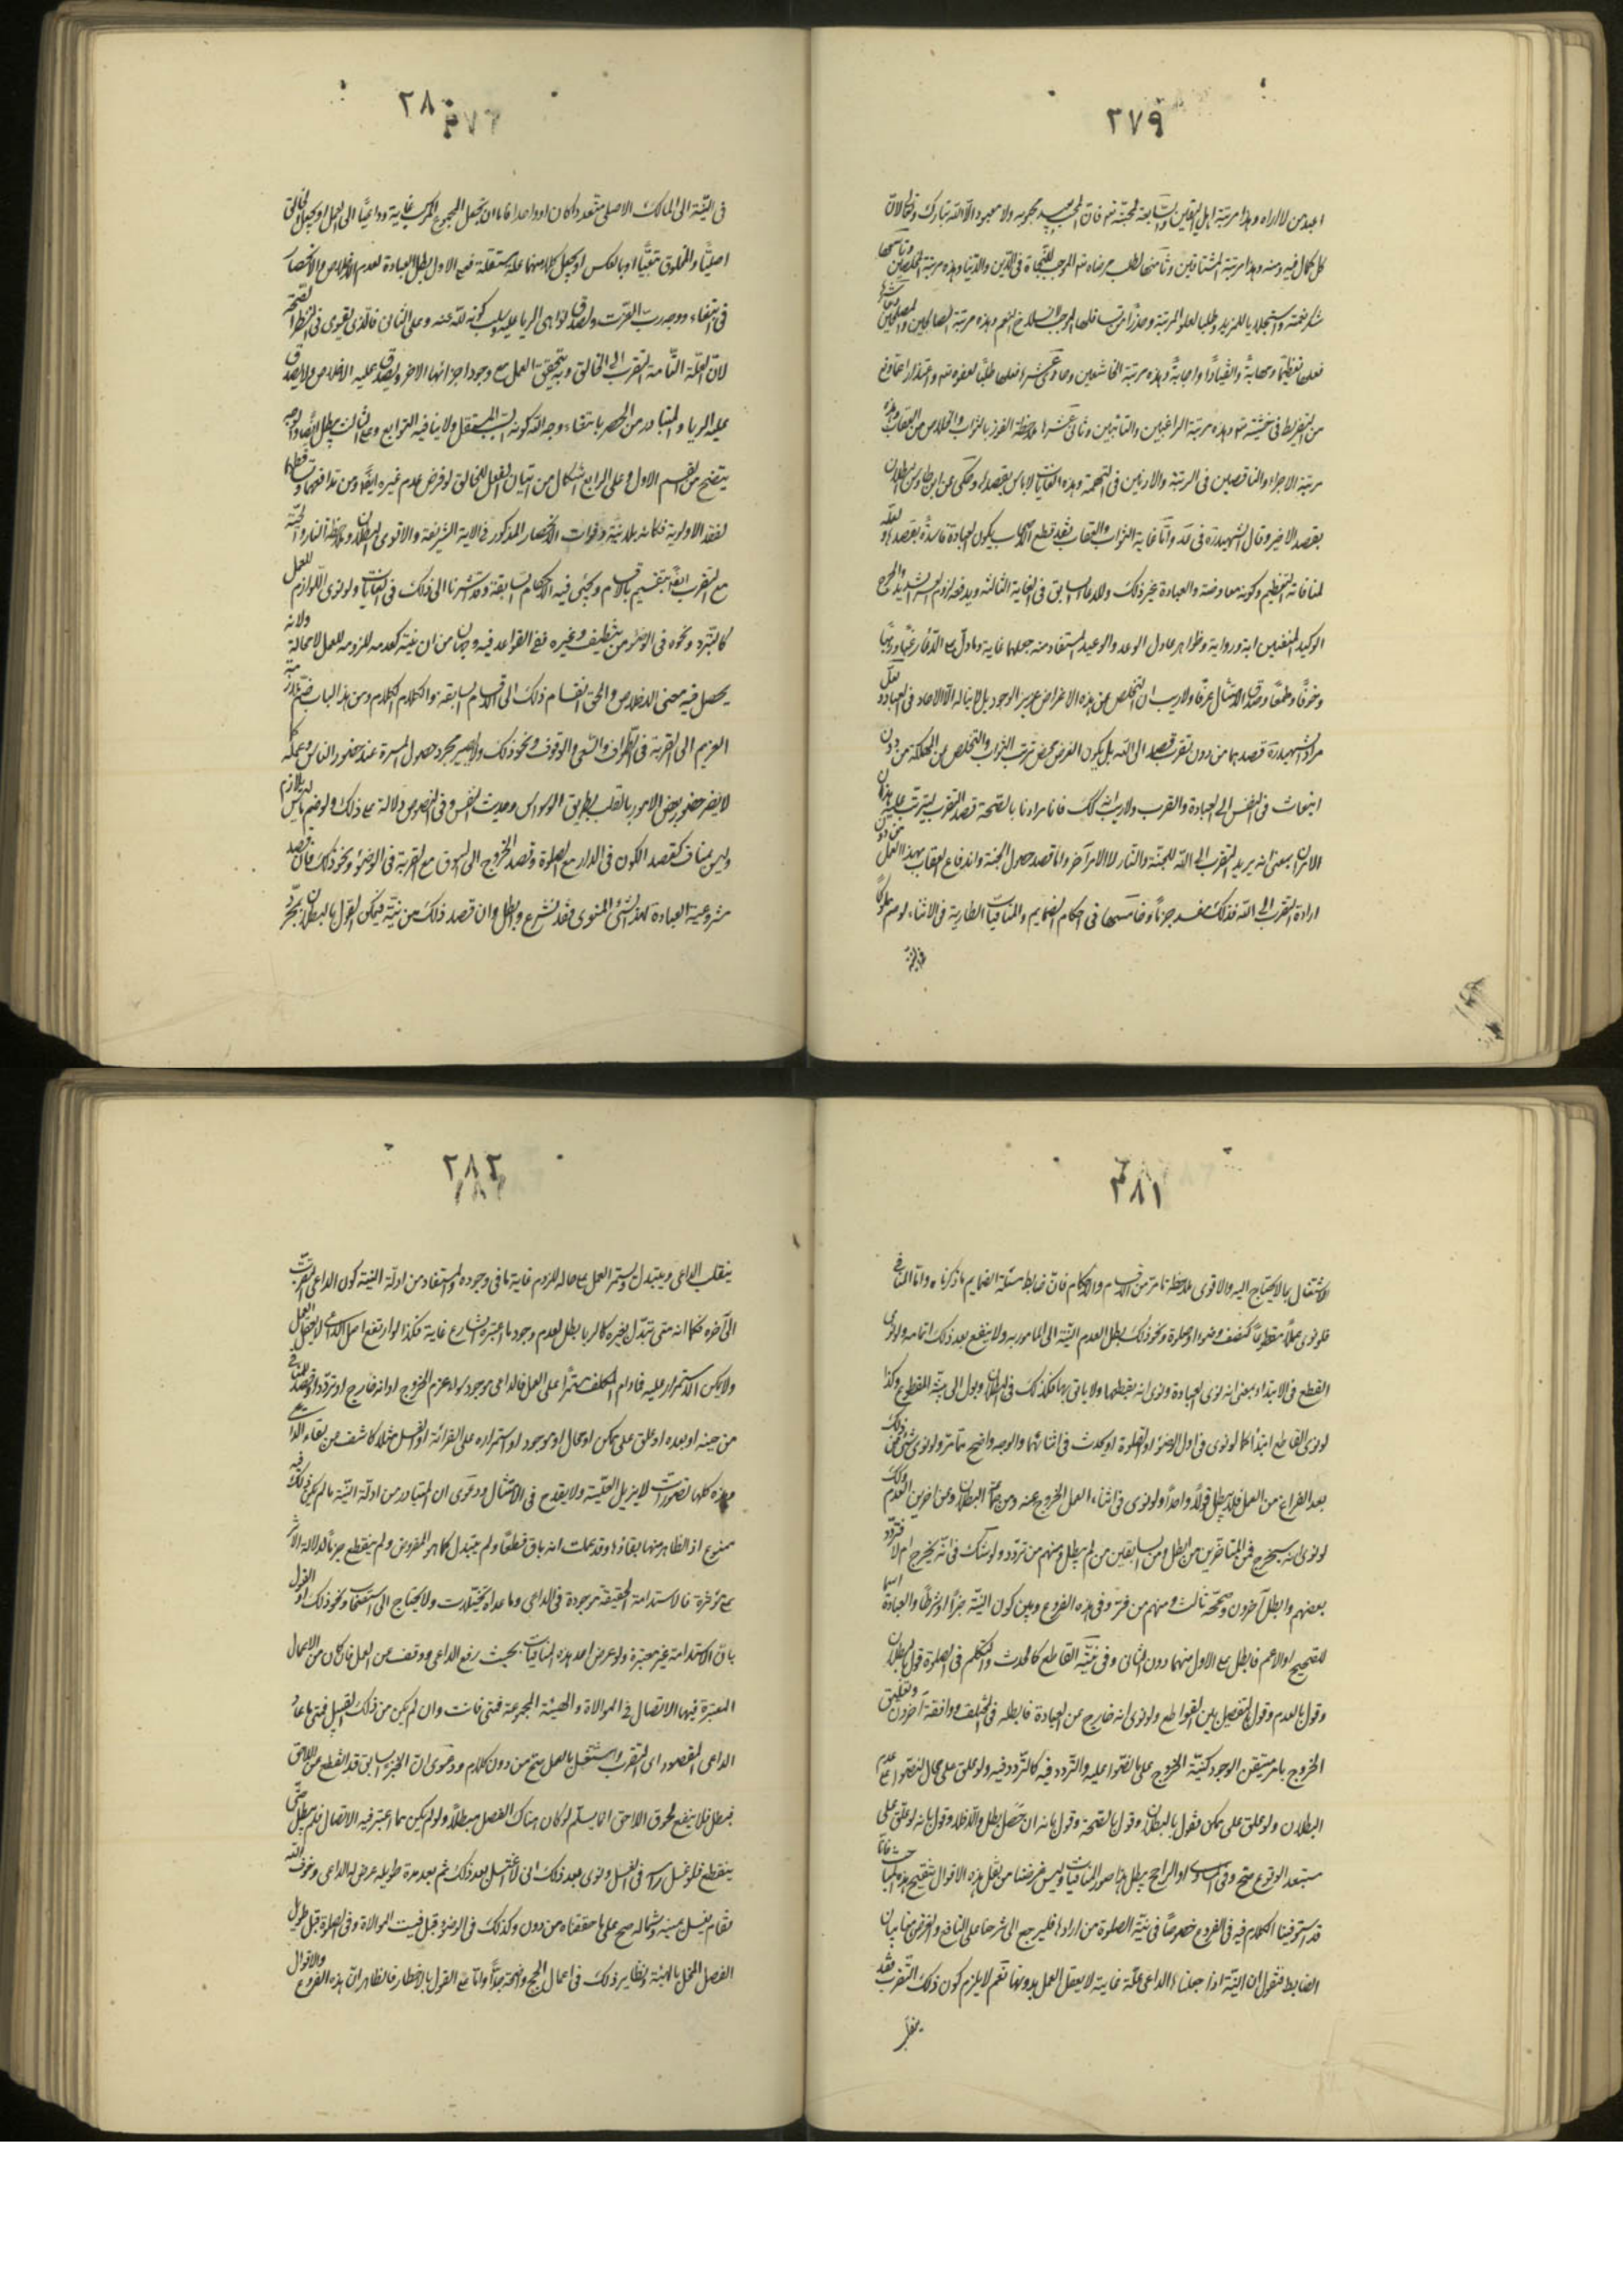 ٢٧٩
اعبد من لا اراه وهذا مرتبة اهل اليقين وسابعة لمحبته تعـ فان المحب يحب محبوبه ولا محبوب الا الله تبارك وتعالى لان
كل كمال فيه ومنه وهذا مرتبة المشتاقين وثامنها لطلب مرضاته تعـ الموجب للنجاة في الدين والدنيا وهذه مرتبة المخلصين وتاسعها
شكر نعمته واستجلابا للمزيد وطلبا لعلو المرتبة وحذرا من تسافلها الموجب لانسلاخ النعم وهذه مرتبة الصالحين والمصلحين وعاشرها
فعلها تعظيما ومهابة وانقيادا واجابة وهذه مرتبة الخاشعين وحادى عشر فعلها طلبا لعفوه تعـ واعتذارا عما وقع
من التفريط في خشيته تعـ وهذه مرتبة الراغبين والتائبين وثانى عشرها ملاحظة الفوز بالثواب والخلاص من العقاب وهذه
مرتبة الاجراء والناقصين في الرتبة والادنين في الهمة وهذه الغايات لا باس بقصدها وحكى عن ابن طاوس بطلان
بقصد الاخير وقال الشهيد ره في قده واما غاية الثواب والعقاب فقد قطع الاصحاب بكون العبادة فاسدة بقصدها ولعله
لمنافاته التعظيم وكونه معاوضة والعبادة غير ذلك وللاجماع السابق في الغاية الثالثة ويدفعه لزوم العسر الشديد والحرج
الوكيد المنفيين اية ورواية وظواهر مادل الوعد والوعيد المستفاد منه جعلهما غاية وما دل على الدعاء رغبا ورهبا
وخوفا وطمعا وصدق الامتثال عرفا ولا ريب ان التخلص عن هذه الاغراض عزيز الوجود بل لا يناله الا الاوحدى في العباد ولعل
مراد الشهيد ره قصدهما من دون تقرب قصد الى الله بل يكون الغرض محض ترتب الثواب والتخلص عن المهلكة من دون
انبعاث في النفس الى العبادة والقرب ولا ريب انه كك فانا مرادنا بالصحة قصد التقرب ليترتب عليه هذان
الامران بمعنى انه يريد التقرب الى الله للجنة والنار لا لامر آخر واما قصد حصول الجنة واندفاع العقاب بهذا العمل من دون
ارادة التقرب الى الله فذلك مفسد جزما وخامسها في احكام الضمايم والمنافيات الطارية في الاثناء لو ضم مملوكا
في النية
٢٨٠
في النية الى المالك الاصلى متعددا كان او واحدا فاما ان يجعل المجموع المركب غاية وداعيا الى العمل او يجعل الخالق
اصليا والمخلوق تبعيا او بالعكس او يجعل كلا منهما علة مستقلة فعلى الاول بطل العبادة لعدم الاخلاص والانحصار
في ابتغاء وجه رب العزت ولصدق نواهى الريا عليه وسلب كونه لله عنه وعلى الثانى فالذى يقوى في النظر الصحة
لان العلة التامة التقرب الى الخالق وبه يتحقق العمل مع وجود اجزائها الاخر ويصدق عليه الاخلاص ولا يصدق
عليه الريا والمتبادر من الحصر بابتغاء وجه الله كونه السبب المستقل ولا ينافيه التوابع وعلى الثالث يبطل ايضا والوجه
يتضح من القسم الاول وعلى الرابع اشكال من اتيان الفعل للخالق لو فرض عدم غيره ايضا ومن تدافعهما وتساقطهما
لفقد الاولوية فكانه بلا نية وفوات الانحصار المذكور في الاية الشريفة والاقوى البطلان وملاحظة النار والجنة
مع التقرب ايضا بتقسيم بالاقسام ويجئ فيه الاحكام السابقة وقد اشرنا الى ذلك في الغايات ولو نوى اللوازم للعمل
كالتبرد ونحوه في الوضوء من تنظيف وغيره ففي القواعد فيه وجهان من ان نيته كعدمه للزومه للعمل لا محالة ولانه
يحصل فيه معنى الاخلاص والحق انقسام ذلك الى الاقسام السابقة والكلام الكلام ومن هذا الباب ضم ملازمة
الغريم الى القربة في الطواف والسعى والوقوف ونحو ذلك ولا يضر مجرد حصول المسرة عند حضور الناس وعمله كما
لا يضر حضور بعض الامور بالقلب بطريق الوسواس وحديث النفس وفي النصوص دلالة على ذلك ولو ضم ما ليس له بلازم
وليس بمناف كقصد الكون في الدار مع الصلوة وقصد الخروج الى السوق مع القربة في الوضوء ونحو ذلك فان قصد
مشروعية العبادة لهذا الشئ المنوى فقد شرع وابطل وان قصد ذلك من نيته فيمكن القول بالبطلان بمجرد
٢٨١
الاشتغال بالايحتاج اليه والاقوى ملاحظة ما مر من الاقسام والاحكام فان ضابط مسئلة الضمايم ما ذكرناه واما المنافى
فلو نوى عملا مقطوعا كنصف وضوء او صلوة ونحو ذلك بطل لعدم النية الى المامور به ولا ينفع بعد ذلك اتمامه ولو نوى
القطع في الابتداء بمعنى انه نوى العبادة ونوى انه يقطعها ولا ياتى بها فكذلك في البطلان ويول الى نية المقطوع وكذا
لو نوى القاطع ابتداء كما لو نوى في اول الوضوء او الصلوة او يحدث في اثنائها والوجه واضح مما مر ولو نوى شئ من ذلك
بعد الفراغ من العمل فلا يبطل قولا واحدا ولو نوى في اثناء العمل الخروج عنه فعن جماعة البطلان وعن اخرين العدم وكك
لو نوى انه سيخرج فمن المتاخرين من ابطل ومن السابقين من لم يبطل ومنهم من تردد ولو شك في انه يخرج ام لا فتردد
بعضهم وابطل آخرون وصححه ثالث ومنهم من فرق في هذه الفروع وبين كون النية جزءا او شرطا والعبادة اسما
للصحيح او الاعم فابطل على الاول منهما دون الثانى وفي نية القاطع كالحدث والتكلم في الصلوة قول بالبطلان
وقول بالعدم وقول بالتفصيل بين القواطع ولو نوى انه خارج عن العبادة فابطله في المختلف ووافقه آخرون وتعليق
الخروج بامر متيقن الوجود كنية الخروج على ما نصوا عليه والتردد فيه كالتردد فيه ولو علق على محال فنصوا على عدم
البطلان ولو علق على ممكن فقول بالبطلان وقول بالصحة وقول بانه ان حصل بطل والا فلا وقول بانه لو علق على
مستبعد الوقوع صح وفي المساوى او الراجح يبطل هذا صور المنافيات وليس غرضنا من نقل هذه الاقوال تنقيح هذه المباحث فانا
قد استوفينا الكلام فيه في الفروع خصوصا في نية الصلوة من ارادها فليرجع الى شرحنا على النافع والغرض هنا بيان
الضابط فنقول ان النية اذا جعلناه الداعى علة غاية لا يعقل العمل بدونها نعم لا يلزم كون ذلك التقرب فقد
ينقلب
٢٨٢
ينقلب الداعى ويتبدل ويستمر العمل على حاله للزوم غاية ما في وجوده والمستفاد من ادلة النية كون الداعى التقرب
الى آخره فكما انه متى تبدل بغيره كالريا بطل لعدم وجود ما اعتبره الشارع غاية فكذا لو ارتفع اصل الداعى لا يحصل العمل
ولا يمكن الاستمرار عليه فما دام المكلف مستمرا على العمل فالداعى موجود سواء عزم الخروج او انه خارج او تردد او قصد المنافى
من حينه او بعده او علق على ممكن او محال او موجود او استمراره على القرائة او الغسل مثلا كاشف عن بقاء الداعى
وهذه كلها تصورات لا يزيل العلية ولا يقدح في الامتثال ودعوى ان المتبادر من ادلة النية ما لم يكن فيه ذلك
ممنوع اذ الظاهر منها بقاؤها وقد علمت انه باق قطعا ولم يتبدل كما هو المفروض ولم ينقطع جزما لدلالة الاثر
على مؤثره فالاستدامة الحقيقة موجودة في الداعى وما عداه تخيلات ولا يحتاج الى استصحاب ونحو ذلك او القول
بان الاستدامة غير معتبرة ولو عرض احد هذه المنافيات بحيث رفع الداعى ووقف عن العمل فان كان من الاعمال
المعتبرة فيها الاتصال في الموالاة والهيئة المجموعة فمتى فاتت وان لم يكن من ذلك القبيل فمتى ما عاد
الداعى المقصود اى التقرب واشتغل بالعمل صح من دون كلام ودعوى ان الجزء السابق قد انقطع عن اللاحق
فبطل فلا ينفع لحوق اللاحق انما يسلم لو كان هناك الفصل مبطلا ولو لم يكن مما اعتبر فيه الاتصال فلم يبطل حتى
ينقطع فلو غسل راسه في الغسل ونوى بعد ذلك انى لا اغتسل بعد ذلك ثم بعد مدة طويلة عرض له الداعى وخوف الله
فقام يغسل يمينه وشماله صح على ما حققناه من دون وكذلك في الوضوء قبل فوت الموالاة وفي الصلوة قبل طويل
الفصل المخل بالهيئة ونظاير ذلك في اعمال الحج واضحة جدا واما على القول بالاخطار فالظاهر ان هذه الفروع والاقوال